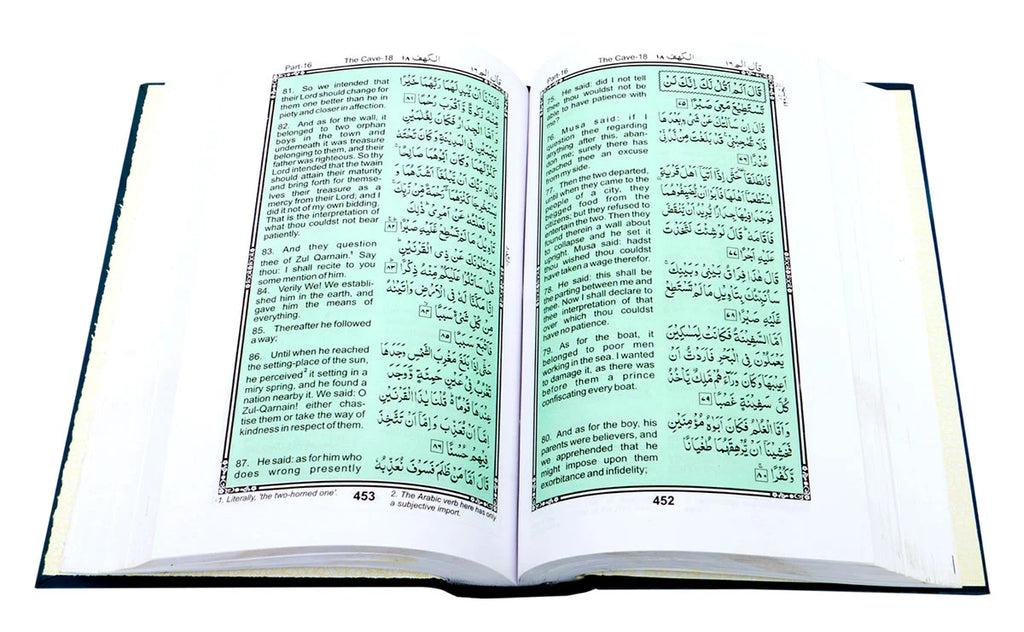 Part-16 The Cave-18 الكهف ١٨ قال الم ١٦
75. He said: did I not tell
thee thou wouldst not be
able to have patience with
me?
76. Musa said: if I
question thee regarding
anything after this, aban-
don me; surely there has
reached thee an excuse
from my side.
77. Then the two departed,
until when they came to the
people of a city, they
begged food from the
citizens; but they refused to
entertain the two. Then they
found therein a wall about
to collapse and he set it
upright. Musa said: hadst
thou wished thou couldst
have taken a wage therefor.
78. He said; this shall be
the parting between me and
thee. Now I shall declare to
thee interpretation of that
over which thou couldst
have no patience.
79. As for the boat, it
belonged to poor men
working in the sea. I wanted
to damage it, as there was
before them a prince
confiscating every boat.
80. And as for the boy, his
parents were believers, and
we apprehended that he
might impose upon them
exorbitance and infidelity;
قَالَ اَلَمْ اَقُلْ لَّكَ اِنَّكَ لَنْ
تَسْتَطِيْعَ مَعِيَ صَبْرًا ٧٥
قَالَ اِنْ سَاَلْتُكَ عَنْ شَيْءٍۭ بَعْدَهَا
فَلَا تُصٰحِبْنِيْ قَدْ بَلَغْتَ مِنْ لَّدُنِّيْ
عُذْرًا ٧٦
فَانْطَلَقَا حَتّٰٓى اِذَآ اَتَيَآ اَهْلَ قَرْيَةِ
اسْتَطْعَمَآ اَهْلَهَا فَاَبَوْا اَنْ يُّضَيِّفُوْهُمَا
فَوَجَدَا فِيْهَا جِدَارًا يُّرِيْدُ اَنْ يَّنْقَضَّ
فَاَقَامَهٗ قَالَ لَوْ شِئْتَ لَتَّخَذْتَ
عَلَيْهِ اَجْرًا ٧٧
قَالَ هٰذَا فِرَاقُ بَيْنِيْ وَبَيْنِكَ
سَاُنَبِّئُكَ بِتَاْوِيْلِ مَا لَمْ تَسْتَطِعْ
عَّلَيْهِ صَبْرًا ٧٨
اَمَّا السَّفِيْنَةُ فَكَانَتْ لِمَسٰكِيْنَ
يَعْمَلُوْنَ فِي الْبَحْرِ فَاَرَدْتُّ اَنْ
اَعِيْبَهَا وَكَانَ وَرَآءَهُمْ مَّلِكٌ يَّاْخُذُ
كُلَّ سَفِيْنَةٍ غَصْبًا ٧٩
وَاَمَّا الْغُلٰمُ فَكَانَ اَبَوٰهُ مُؤْمِنَيْنِ
فَخَشِيْنَآ اَنْ يُّرْهِقَهُمَا طُغْيَانًا
وَّكُفْرًا ٨٠
452
Part-16 The Cave-18 الكهف ١٨ قال الم ١٦
81. So we intended that
their Lord should change for
them one better than he in
piety and closer in affection.
82. And as for the wall, it
belonged to two orphan
boys in the town and
underneath it was treasure
belonging to them, and their
father was righteous. So thy
Lord intended that the twain
should attain their maturity
and bring forth for themse-
lves their treasure as a
mercy from their Lord; and I
did it not of my own bidding.
That is the interpretation of
what thou couldst not bear
patiently.
83. And they question
thee of Zul Qarnain.¹ Say
thou: I shall recite to you
some mention of him.
84. Verily We! We establi-
shed him in the earth, and
gave him the means of
everything.
85. Thereafter he followed
a way;
86. Until when he reached
the setting-place of the sun,
he perceived² it setting in a
miry spring, and he found a
nation nearby it. We said: O
Zul-Qarnain! either chas-
tise them or take the way of
kindness in respect of them.
87. He said: as for him who
does wrong presently
فَاَرَدْنَآ اَنْ يُّبْدِلَهُمَا رَبُّهُمَا خَيْرًا
مِّنْهُ زَكٰوةً وَّاَقْرَبَ رُحْمًا ٨١
وَاَمَّا الْجِدَارُ فَكَانَ لِغُلٰمَيْنِ
يَتِيْمَيْنِ فِي الْمَدِيْنَةِ وَكَانَ تَحْتَهٗ
كَنْزٌ لَّهُمَا وَكَانَ اَبُوْهُمَا صَالِحًا
فَاَرَادَ رَبُّكَ اَنْ يَّبْلُغَآ اَشُدَّهُمَا وَ
يَسْتَخْرِجَا كَنْزَهُمَا رَحْمَةً مِّنْ رَّبِّكَ
وَمَا فَعَلْتُهٗ عَنْ اَمْرِيْ ذٰلِكَ
تَاْوِيْلُ مَا لَمْ تَسْطِعْ عَّلَيْهِ صَبْرًا ٨٢
وَيَسْـَٔلُوْنَكَ عَنْ ذِي الْقَرْنَيْنِ
قُلْ سَاَتْلُوْا عَلَيْكُمْ مِّنْهُ ذِكْرًا ٨٣
اِنَّا مَكَّنَّا لَهٗ فِي الْاَرْضِ وَاٰتَيْنٰهُ
مِنْ كُلِّ شَيْءٍ سَبَبًا ٨٤
فَاَتْبَعَ سَبَبًا ٨٥
حَتّٰٓى اِذَا بَلَغَ مَغْرِبَ الشَّمْسِ وَجَدَهَا
تَغْرُبُ فِيْ عَيْنٍ حَمِئَةٍ وَّوَجَدَ
عِنْدَهَا قَوْمًا قُلْنَا يٰذَا الْقَرْنَيْنِ
اِمَّآ اَنْ تُعَذِّبَ وَاِمَّآ اَنْ تَتَّخِذَ
فِيْهِمْ حُسْنًا ٨٦
قَالَ اَمَّا مَنْ ظَلَمَ فَسَوْفَ نُعَذِّبُهٗ
1. Literally, 'the two-horned one'.
453
2. The Arabic verb here has only
a subjective import.